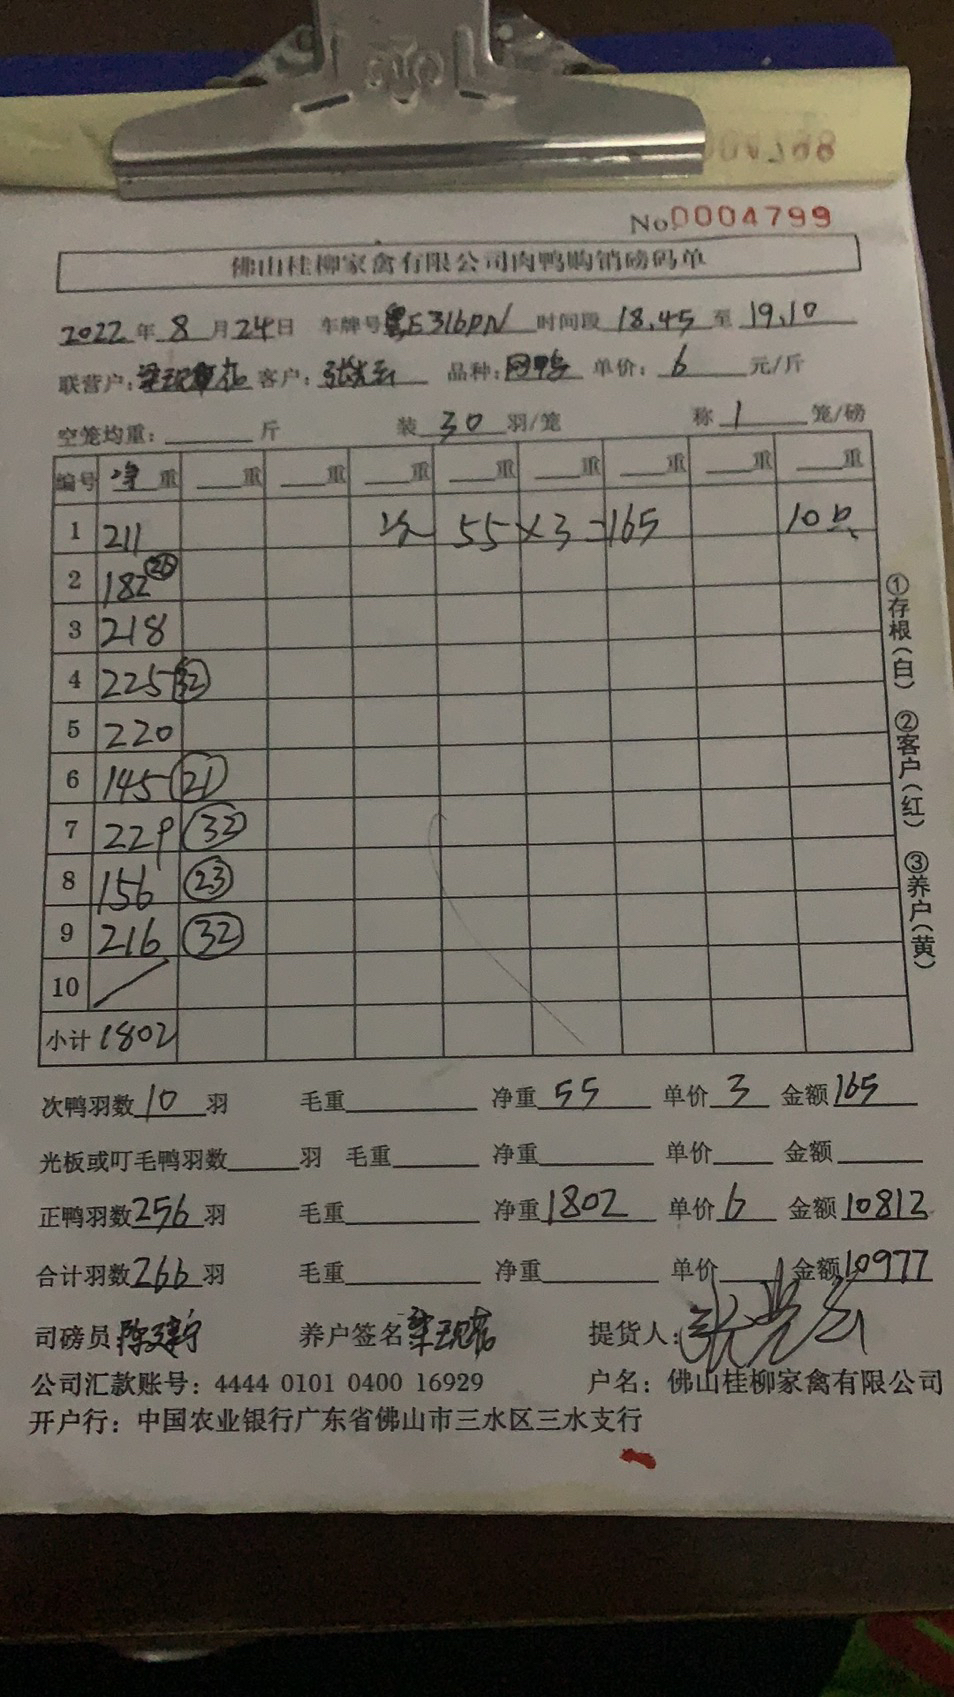 No 0004799
佛山桂柳家禽有限公司肉鸭购销磅码单
2022 年 8 月 24 日 车牌号 粤E316DN 时间段 18.45 至 19.10
联营户: 客户: 品种: 单价: 6 元/斤
空笼均重: 斤 装 30 羽/笼 称 1 笼/磅
编号 净重 重 重 重 重 重 重 重 重
1 211 次 55 × 3 = 165 10只
2 182
3 218
4 225 32
5 220
6 145 21
7 229 32
8 156 23
9 216 32
10 /
小计 1802
次鸭羽数 10 羽 毛重 净重 55 单价 3 金额 165
光板或叮毛鸭羽数 羽 毛重 净重 单价 金额
正鸭羽数 256 羽 毛重 净重 1802 单价 6 金额 10812
合计羽数 266 羽 毛重 净重 单价 金额 10977
司磅员 养户签名 提货人:
公司汇款账号: 4444 0101 0400 16929 户名: 佛山桂柳家禽有限公司
开户行: 中国农业银行广东省佛山市三水区三水支行
①存根(白) ②客户(红) ③养户(黄)